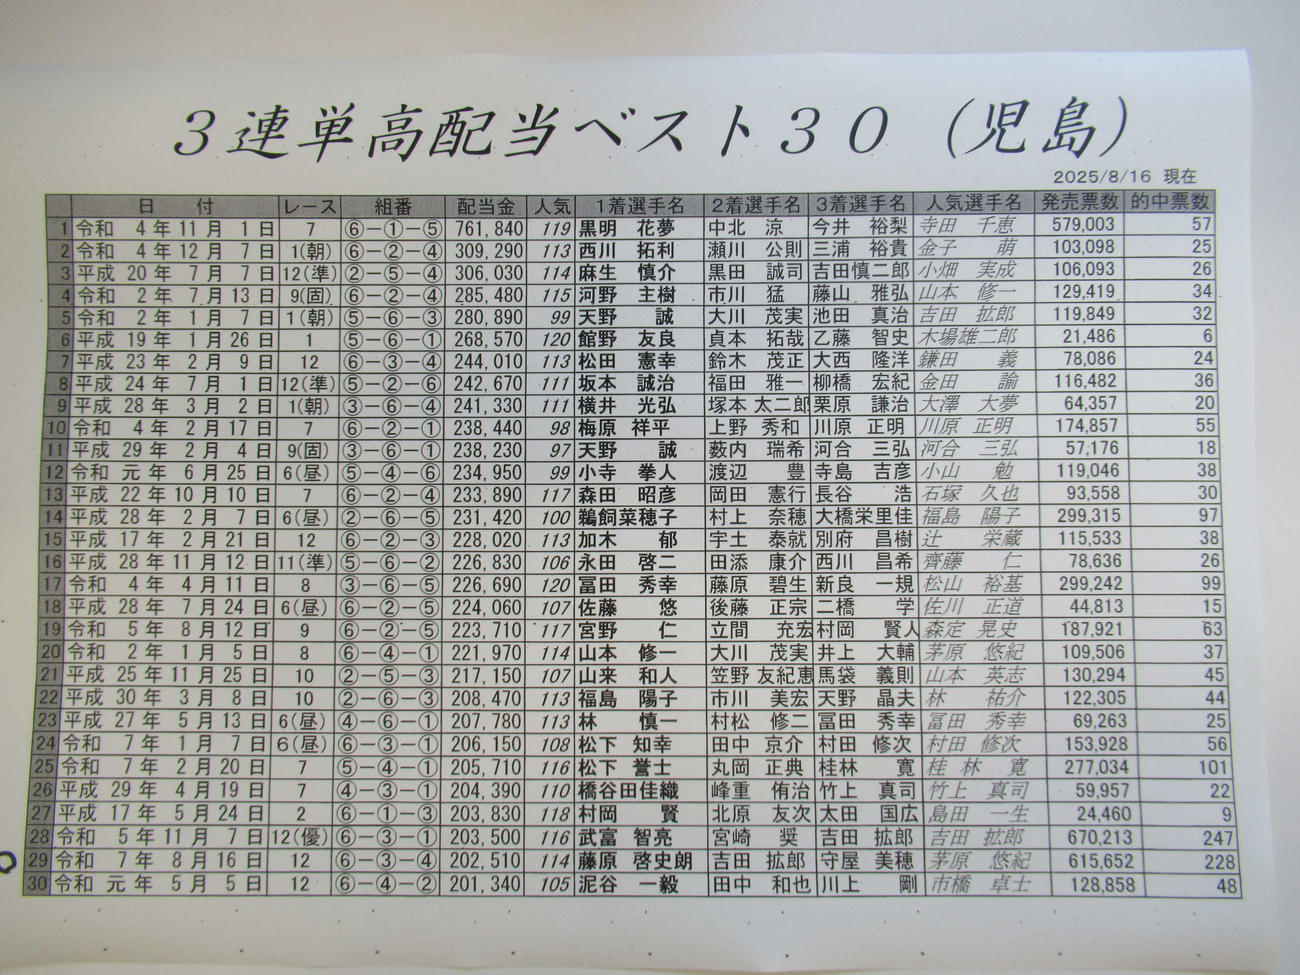 ３連単高配当ベスト３０（児島）
2025/8/16 現在
日 付 レース 組番 配当金 人気 1着選手名 2着選手名 3着選手名 人気選手名 発売票数 的中票数
1 令和 4年11月 1日 7 ⑥－①－⑤ 761,840 119 黒明 花夢 中北 涼 今井 裕梨 寺田 千恵 579,003 57
2 令和 4年12月 7日 1(朝) ⑥－②－④ 309,290 113 西川 拓利 瀬川 公則 三浦 裕貴 金子 萌 103,098 25
3 平成 20年 7月 7日 12(準) ②－⑤－④ 306,030 114 麻生 慎介 黒田 誠司 吉田慎二郎 小畑 実成 106,093 26
4 令和 2年 7月13日 9(固) ⑥－②－④ 285,480 115 河野 主樹 市川 猛 藤山 雅弘 山本 修一 129,419 34
5 令和 2年 1月 7日 1(朝) ⑤－⑥－③ 280,890 99 天野 誠 大川 茂実 池田 真治 吉田 拡郎 119,849 32
6 平成 19年 1月26日 1 ⑤－⑥－① 268,570 120 館野 友良 貞本 拓哉 乙藤 智史 木場雄二郎 21,486 6
7 平成 23年 2月 9日 12 ⑥－③－④ 244,010 113 松田 憲幸 鈴木 茂正 大西 隆洋 鎌田 義 78,086 24
8 平成 24年 7月 1日 12(準) ⑤－②－⑥ 242,670 111 坂本 誠治 福田 雅一 柳橋 宏紀 金田 諭 116,482 36
9 平成 28年 3月 2日 1(朝) ③－⑥－④ 241,330 111 横井 光弘 塚本 太二郎 栗原 謙治 大澤 大夢 64,357 20
10 令和 4年 2月17日 7 ⑥－②－① 238,440 98 梅原 祥平 上野 秀和 川原 正明 川原 正明 174,857 55
11 平成 29年 2月 4日 9(固) ③－⑥－① 238,230 97 天野 誠 薮内 瑞希 河合 三弘 河合 三弘 57,176 18
12 令和 元年 6月25日 6(昼) ⑤－④－⑥ 234,950 99 小寺 拳人 渡辺 豊 寺島 吉彦 小山 勉 119,046 38
13 平成 22年10月10日 7 ⑥－②－④ 233,890 117 森田 昭彦 岡田 憲行 長谷 浩 石塚 久也 93,558 30
14 平成 28年 2月 7日 6(昼) ②－⑥－⑤ 231,420 100 鵜飼菜穂子 村上 奈穂 大橋栄里佳 福島 陽子 299,315 97
15 平成 17年 2月21日 12 ⑥－②－③ 228,020 113 加木 郁 宇土 泰就 別府 昌樹 辻 栄蔵 115,533 38
16 平成 28年11月12日 11(準) ⑤－⑥－② 226,830 106 永田 啓二 田添 康介 西川 昌希 齊藤 仁 78,636 26
17 令和 4年 4月11日 8 ③－⑥－⑤ 226,690 120 冨田 秀幸 藤原 碧生 新良 一規 松山 裕基 299,242 99
18 平成 28年 7月24日 6(昼) ⑥－②－⑤ 224,060 107 佐藤 悠 後藤 正宗 二橋 学 佐川 正道 44,813 15
19 令和 5年 8月12日 9 ⑥－②－⑤ 223,710 117 宮野 仁 立間 充宏 村岡 賢人 森定 晃史 187,921 63
20 令和 2年 1月 5日 8 ⑥－④－① 221,970 114 山本 修一 大川 茂実 井上 大輔 茅原 悠紀 109,506 37
21 平成 25年11月25日 10 ②－⑤－③ 217,150 107 山来 和人 笠野 友紀恵 馬袋 義則 山本 英志 130,294 45
22 平成 30年 3月 8日 10 ②－⑥－③ 208,470 113 福島 陽子 市川 美宏 天野 晶夫 林 祐介 122,305 44
23 平成 27年 5月13日 6(昼) ④－⑥－① 207,780 113 林 慎一 村松 修二 冨田 秀幸 冨田 秀幸 69,263 25
24 令和 7年 1月 7日 6(昼) ⑥－③－① 206,150 108 松下 知幸 田中 京介 村田 修次 村田 修次 153,928 56
25 令和 7年 2月20日 7 ⑤－④－① 205,710 116 松下 誉士 丸岡 正典 桂林 寛 桂林 寛 277,034 101
26 平成 29年 4月19日 7 ④－③－① 204,390 110 橋谷田佳織 峰重 侑治 竹上 真司 竹上 真司 59,957 22
27 平成 17年 5月24日 2 ⑥－①－③ 203,830 118 村岡 賢 北原 友次 太田 国広 島田 一生 24,460 9
28 令和 5年11月 7日 12(優) ⑥－③－① 203,500 116 武富 智亮 宮崎 奨 吉田 拡郎 吉田 拡郎 670,213 247
29 令和 7年 8月16日 12 ⑥－③－④ 202,510 114 藤原 啓史朗 吉田 拡郎 守屋 美穂 茅原 悠紀 615,652 228
30 令和 元年 5月 5日 12 ⑥－④－② 201,340 105 泥谷 一毅 田中 和也 川上 剛 市橋 卓士 128,858 48